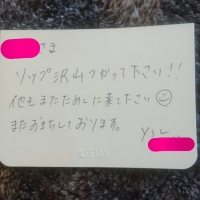 さま
リップ沢山つかって下さい!!
他もまたためしに来て下さい☺
またお待ちしております。
YSL